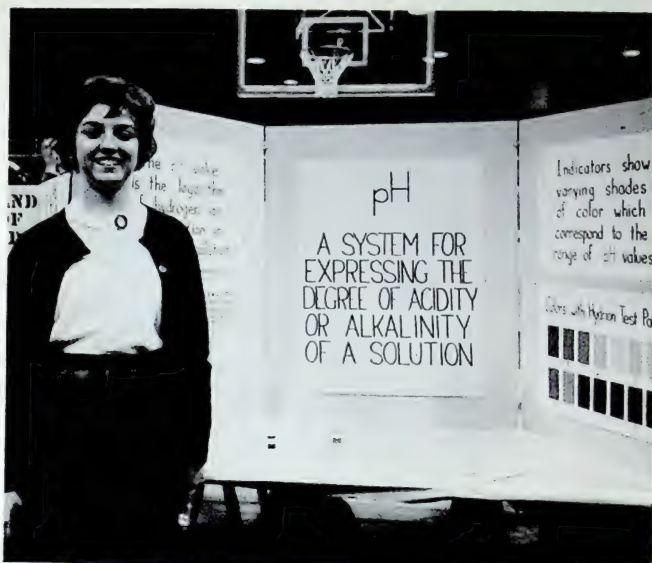 AND
OF
value
is the logs the
hydrogen
pH
A SYSTEM FOR
EXPRESSING THE
DEGREE OF ACIDITY
OR ALKALINITY
OF A SOLUTION
Indicators show
varying shades
of color which
correspond to the
range of pH values
Colors with Hydrion Test Pa